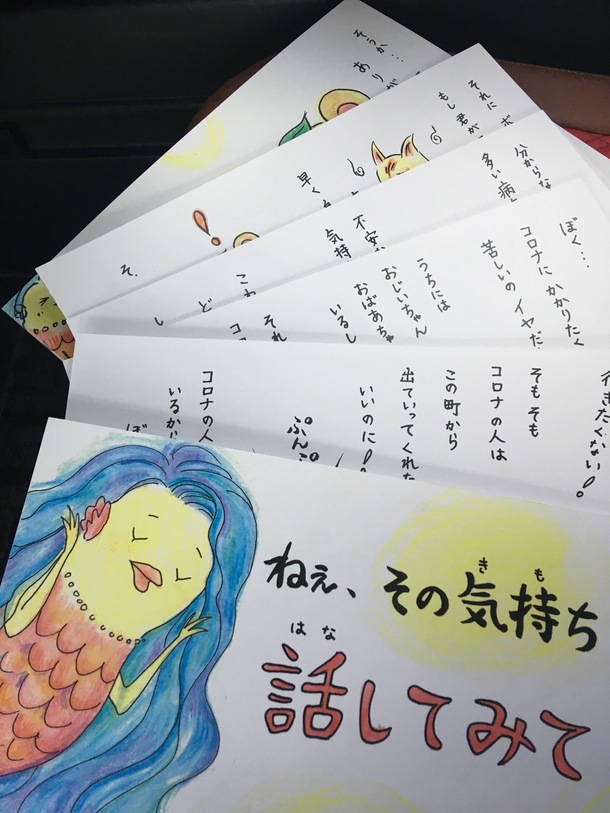 ねぇ、その気持ち
きも
話してみて
はな
行きたくない!
そもそも
コロナの人は
この町から
出ていってくれた
いいのに!
ぷんぷ
コロナの人
いるから
ぼ
ぼく…
コロナにかかりたく
苦しいのイヤだ
うちには
おじいちゃん
おばあちゃ
いるし
それ
コロ
分からな
多い病
不安
気持
こわ
ど
それに
もし君が
早く
そ
し
そうか…
ありが